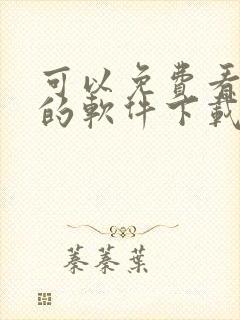 可以免費看
的軟件下載
蓁蓁葉